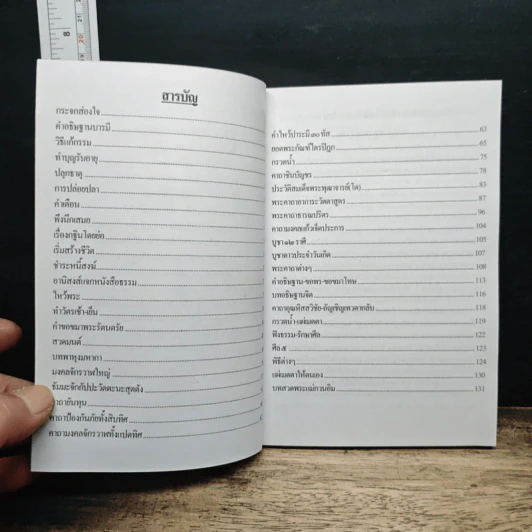 สารบัญ
กระจกส่องใจ
คำอธิษฐานบารมี
วิธีแก้กรรม
ทำบุญรับอายุ
ปลุกธาตุ
การปล่อยปลา
คำเตือน
พึงนึกเสมอ
เรื่องกฐินโดยย่อ
เริ่มสร้างชีวิต
ชำระหนี้สงฆ์
อานิสงส์แจกหนังสือธรรม
ไหว้พระ
ทำวัตรเช้า-เย็น
คำขอขมาพระรัตนตรัย
สวดมนต์
บทพาหุงมหากา
มงคลจักรวาฬใหญ่
ธัมมะจักกัปปะวัตตะนะสุตตัง
คาถายันทุน
คาถาป้องกันภัยทั้งสิบทิศ
คาถามงคลจักรวาฬทั้งแปดทิศ
คำไหว้บารมี ๓๐ ทัส 63
ยอดพระกัณฑ์ไตรปิฎก 65
กรวดน้ำ 75
คาถาชินบัญชร 78
ประวัติสมเด็จพระพุฒาจารย์(โต) 83
พระคาถาอาการะวัตตาสูตร 87
พระคาถาธารณปริตร 96
คาถามงคลแก้วเจ็ดประการ 104
บูชา ๑๒ ราศี 105
บูชาดาวประจำวันเกิด 107
พระคาถาต่างๆ 108
คำอธิษฐาน-ขอพร-ขอขมาโทษ 113
บทอธิษฐานจิต 116
คาถาอุณหิสสวิชัย-อัญเชิญเทวดากลับ 118
กรวดน้ำ-แผ่เมตตา 119
ฟังธรรม-รักษาศีล 122
ศีล ๕ 123
พิธีต่างๆ 124
แผ่เมตตาให้ตนเอง 130
บทสวดพระแม่กวนอิม 131